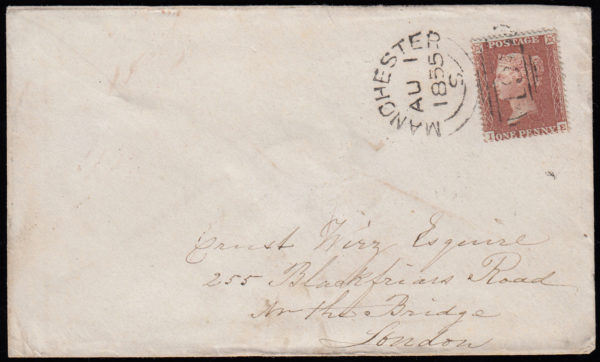 MANCHESTER
AU 1
1855
S
POSTAGE
ONE PENNY
Ernst Wirz Esquire
255 Blackfriars Road
Nr the Bridge
London